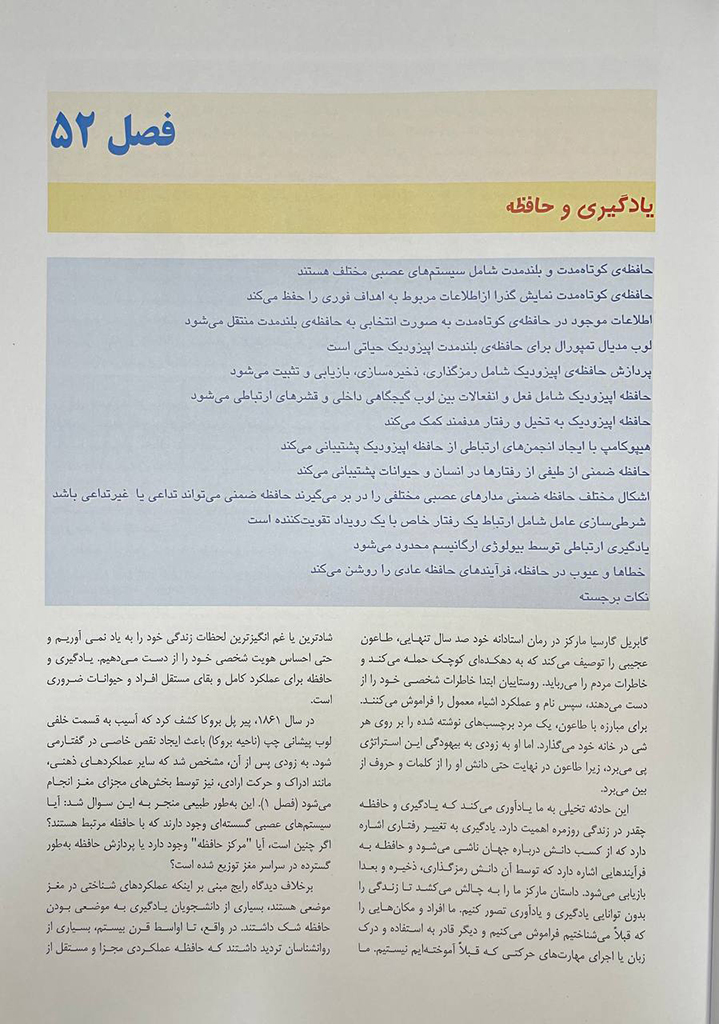 فصل ۵۲
یادگیری و حافظه
حافظه‌ی کوتاه‌مدت و بلندمدت شامل سیستم‌های عصبی مختلف هستند
حافظه‌ی کوتاه‌مدت نمایش گذرا ازاطلاعات مربوط به اهداف فوری را حفظ می‌کند
اطلاعات موجود در حافظه‌ی کوتاه‌مدت به صورت انتخابی به حافظه‌ی بلندمدت منتقل می‌شود
لوب مدیال تمپورال برای حافظه‌ی بلندمدت اپیزودیک حیاتی است
پردازش حافظه‌ی اپیزودیک شامل رمزگذاری، ذخیره‌سازی، بازیابی و تثبیت می‌شود
حافظه اپیزودیک شامل فعل و انفعالات بین لوب گیجگاهی داخلی و قشرهای ارتباطی می‌شود
حافظه اپیزودیک به تخیل و رفتار هدفمند کمک می‌کند
هیپوکامپ با ایجاد انجمن‌های ارتباطی از حافظه اپیزودیک پشتیبانی می‌کند
حافظه ضمنی از طیفی از رفتارها در انسان و حیوانات پشتیبانی می‌کند
اشکال مختلف حافظه ضمنی مدارهای عصبی مختلفی را در بر می‌گیرند حافظه ضمنی می‌تواند تداعی یا غیرتداعی باشد
شرطی‌سازی عامل شامل ارتباط یک رفتار خاص با یک رویداد تقویت‌کننده است
یادگیری ارتباطی توسط بیولوژی ارگانیسم محدود می‌شود
خطاها و عیوب در حافظه، فرآیندهای حافظه عادی را روشن می‌کند
نکات برجسته
گابریل گارسیا مارکز در رمان استادانه خود صد سال تنهایی، طاعون
عجیبی را توصیف می‌کند که به دهکده‌ای کوچک حمله می‌کند و
خاطرات مردم را می‌رباید. روستاییان ابتدا خاطرات شخصی خود را از
دست می‌دهند، سپس نام و عملکرد اشیاء معمول را فراموش می‌کنند.
برای مبارزه با طاعون، یک مرد برچسب‌های نوشته شده را بر روی هر
شی در خانه خود می‌گذارد. اما او به زودی به بیهودگی این استراتژی
پی می‌برد، زیرا طاعون در نهایت حتی دانش او را از کلمات و حروف از
بین می‌برد.
این حادثه تخیلی به ما یادآوری می‌کند که یادگیری و حافظه
چقدر در زندگی روزمره اهمیت دارد. یادگیری به تغییر رفتاری اشاره
دارد که از کسب دانش درباره جهان ناشی می‌شود و حافظه به
فرآیندهایی اشاره دارد که توسط آن دانش رمزگذاری، ذخیره و بعدا
بازیابی می‌شود. داستان مارکز ما را به چالش می‌کشد تا زندگی را
بدون توانایی یادگیری و یادآوری تصور کنیم. ما افراد و مکان‌هایی را
که قبلاً می‌شناختیم فراموش می‌کنیم و دیگر قادر به استفاده و درک
زبان یا اجرای مهارت‌های حرکتی که قبلاً آموخته‌ایم نیستیم. ما
شادترین یا غم انگیزترین لحظات زندگی خود را به یاد نمی آوریم و
حتی احساس هویت شخصی خود را از دست می‌دهیم. یادگیری و
حافظه برای عملکرد کامل و بقای مستقل افراد و حیوانات ضروری
است.
در سال ۱۸۶۱، پیر پل بروکا کشف کرد که آسیب به قسمت خلفی
لوب پیشانی چپ (ناحیه بروکا) باعث ایجاد نقص خاصی در گفتارمی
شود. به زودی پس از آن، مشخص شد که سایر عملکردهای ذهنی،
مانند ادراک و حرکت ارادی، نیز توسط بخش‌های مجزای مغز انجام
می‌شود (فصل ۱). این به‌طور طبیعی منجر به این سوال شد: آیا
سیستم‌های عصبی گسسته‌ای وجود دارند که با حافظه مرتبط هستند؟
اگر چنین است، آیا "مرکز حافظه" وجود دارد یا پردازش حافظه به‌طور
گسترده در سراسر مغز توزیع شده است؟
برخلاف دیدگاه رایج مبنی بر اینکه عملکردهای شناختی در مغز
موضعی هستند، بسیاری از دانشجویان یادگیری به موضعی بودن
حافظه شک داشتند. در واقع، تا اواسط قرن بیستم، بسیاری از
روانشناسان تردید داشتند که حافظه عملکردی مجزا و مستقل از